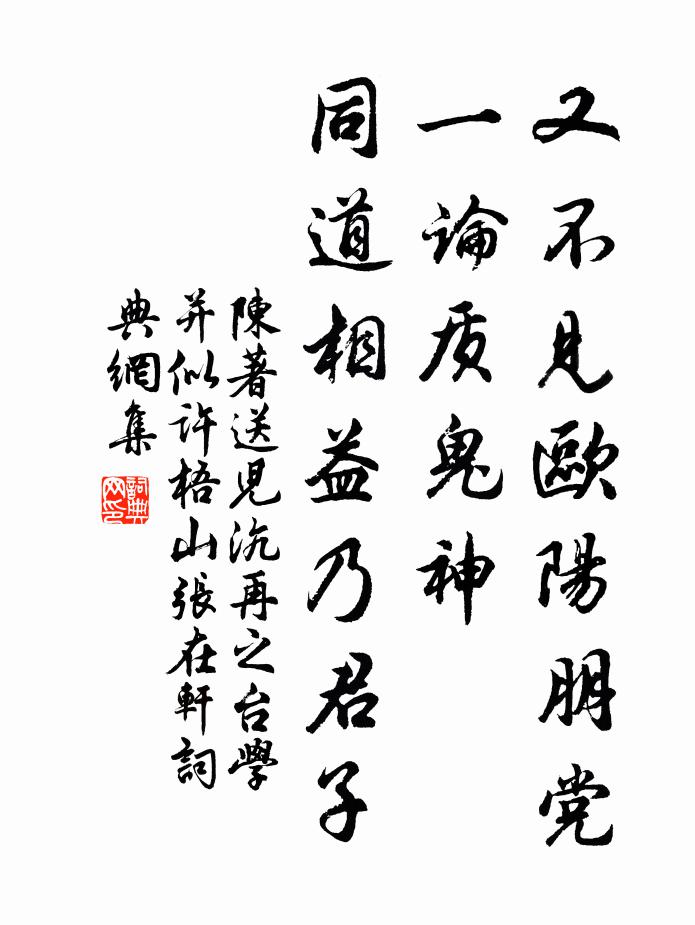 又不见歐陽朋党
一論质鬼神
同道相益乃君子
陳著送児沆再之台學
并似许梧山張在軒詞
典網集
詞典
网印